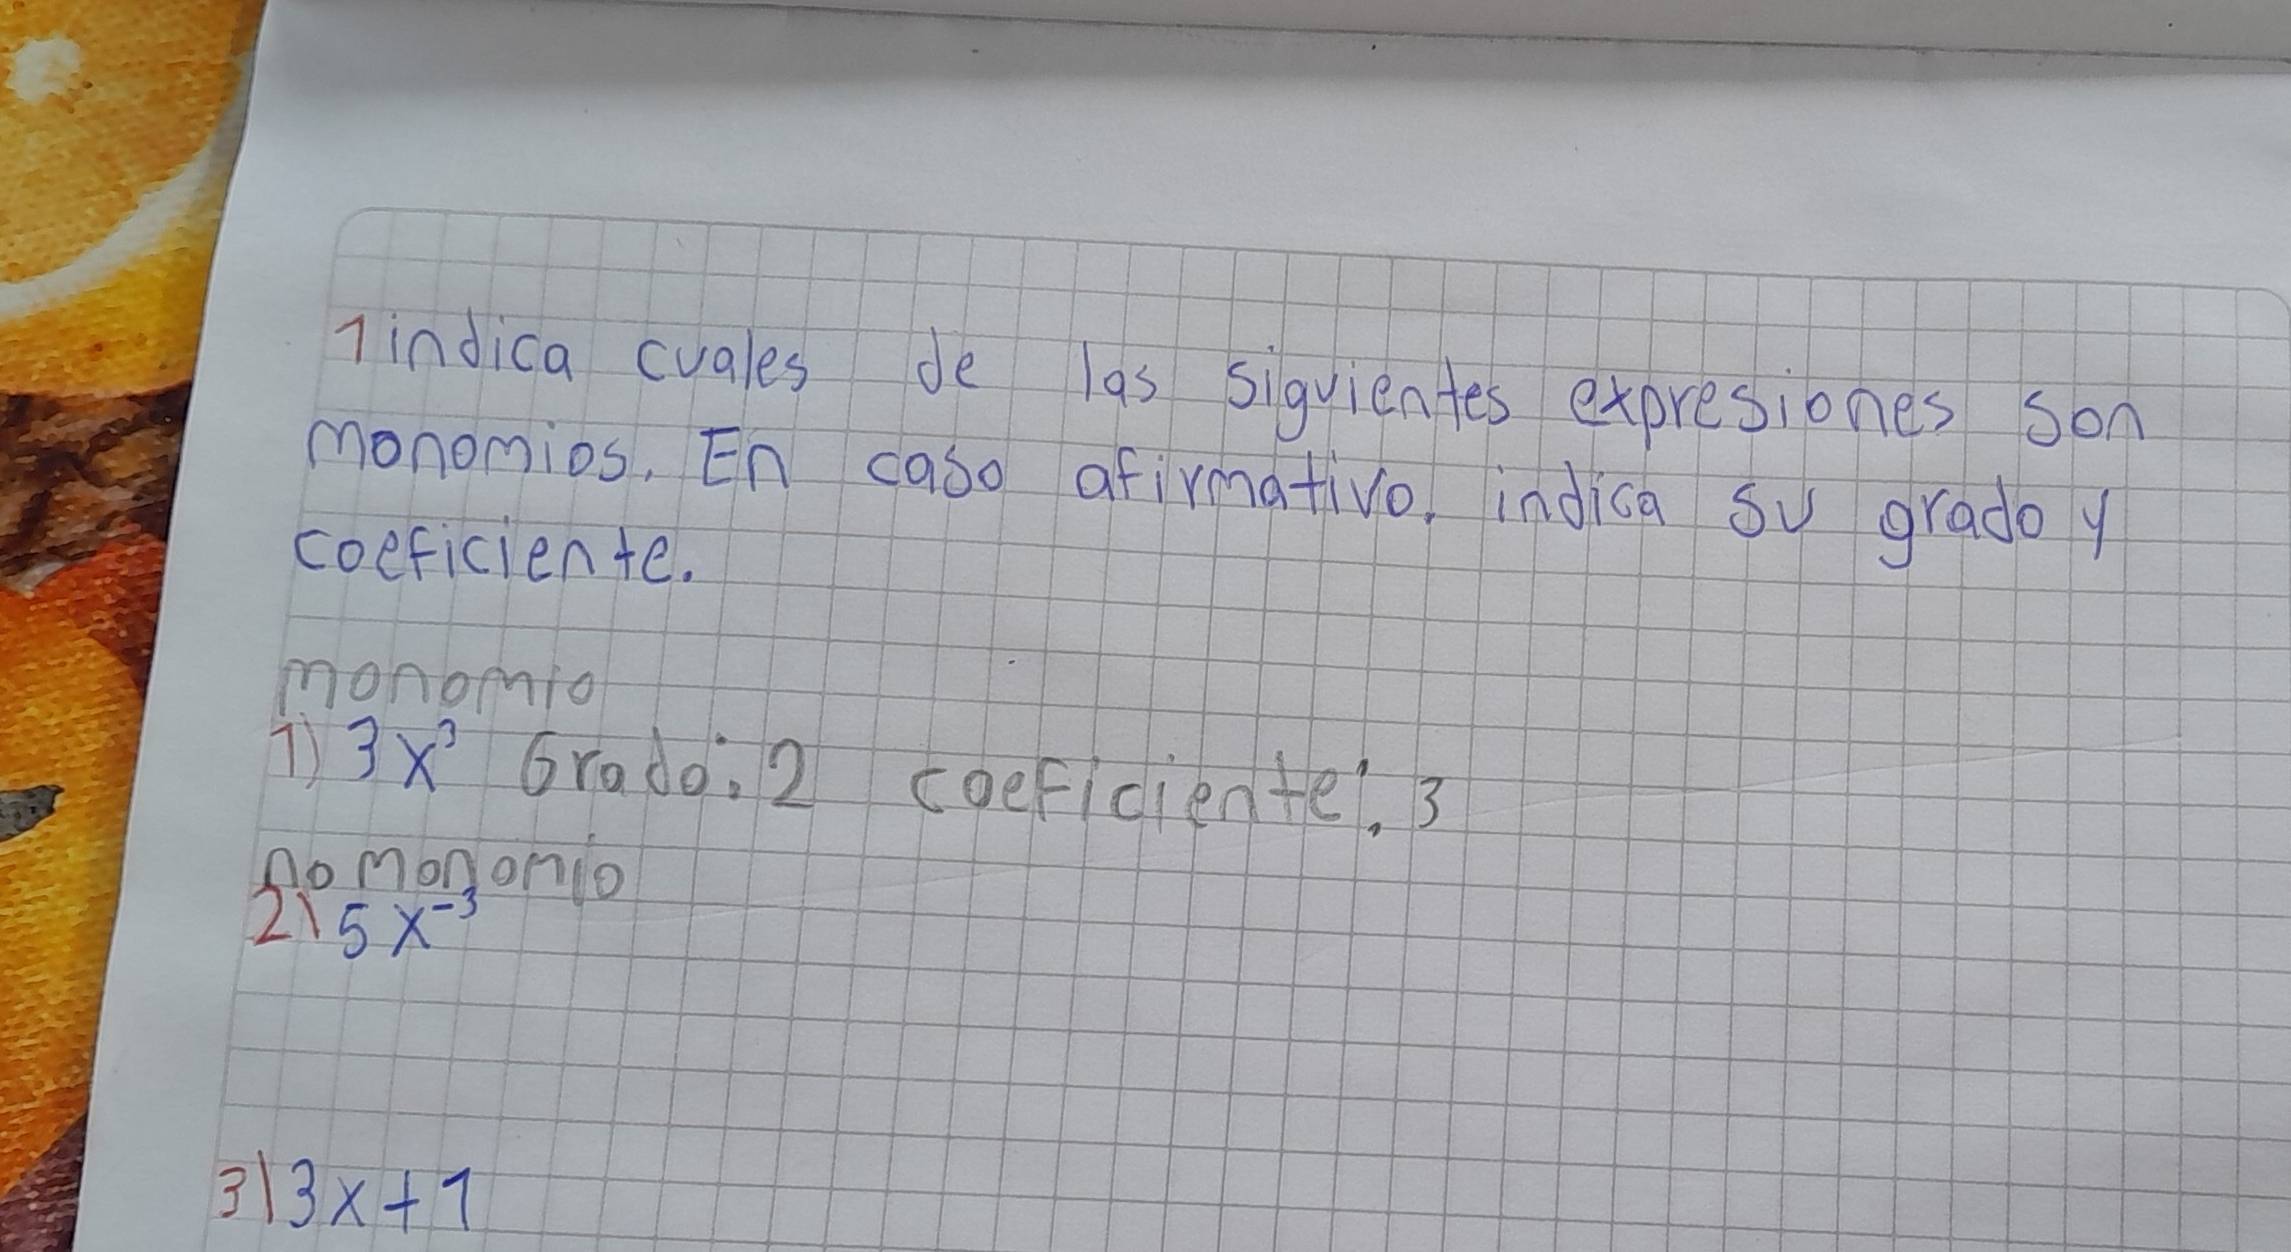 1 indica cuales de las siguientes expresiones son
monomios. En caso afirmativo, indica su grado y
coeficiente.
monomio
1) 3x³ Grado: 2 coeficiente: 3
no monomio
2) 5x⁻³
3) 3x+1